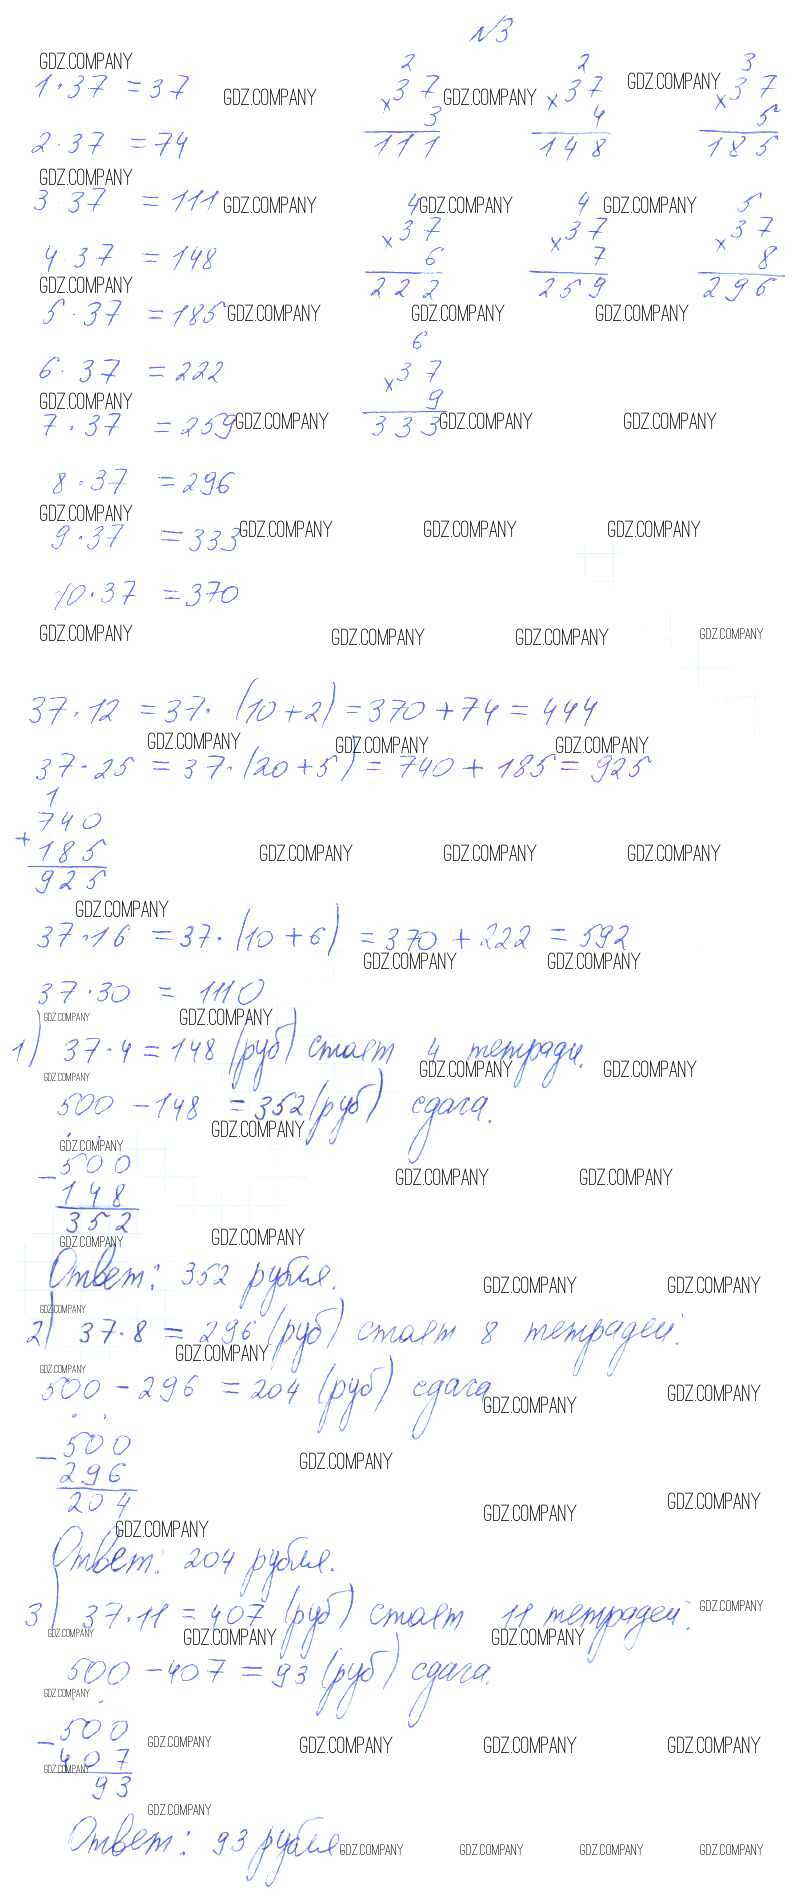 №3
1·37 = 37
2·37 = 74
3·37 = 111
4·37 = 148
5·37 = 185
6·37 = 222
7·37 = 259
8·37 = 296
9·37 = 333
10·37 = 370
2 2 3
×37 ×37 ×37
3 4 5
111 148 185
4 4 5
×37 ×37 ×37
6 7 8
222 259 296
6
×37
9
333
37·12 = 37·(10+2) = 370+74 = 444
37·25 = 37·(20+5) = 740+185 = 925
1
+740
185
925
37·16 = 37·(10+6) = 370+222 = 592
37·30 = 1110
1) 37·4 = 148 (руб) стоят 4 тетради.
500 – 148 = 352 (руб) сдача.
–500
148
352
Ответ: 352 рубля.
2) 37·8 = 296 (руб) стоят 8 тетрадей.
500 – 296 = 204 (руб) сдача
–500
296
204
Ответ: 204 рубля.
3) 37·11 = 407 (руб) стоят 11 тетрадей.
500 – 407 = 93 (руб) сдача.
–500
407
93
Ответ: 93 рубля
GDZ.COMPANY